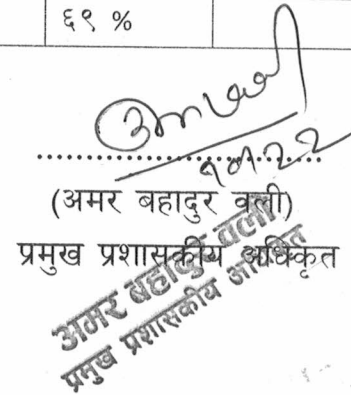 ६९ %
(अमर बहादुर वली)
प्रमुख प्रशासकीय अधिकृत
अमर बहादुर वली
प्रमुख प्रशासकीय अधिकृत